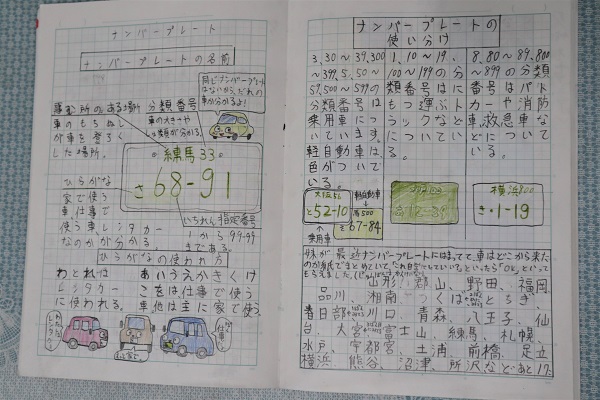 ナンバープレート
ナンバープレートの名前
同じナンバープレート
はないから、だれの
車か分かるよ!
事む所のある場所
車のもちぬし
が車を登ろく
した場所。
分類番号
車の大きさや
しゅ類が分かる。
練馬 33
さ 68-91
ひらがな
家で使う
車、仕事で
使う車、レンタカー
なのかが分かる。
いちれん指定番号
1から99-99
まである。
ひらがなの使われ方
わとれは
レンタカー
に使われる。
あいうえかきくけ
こをは仕事で使う
車。他は主に家で使う。
わたしは
レンタカー
仕事
ナンバープレートの
使い分け
3, 30~39, 300
~399, 5, 50~
59, 500~599の
分類番号は
乗用車につ
いています。
軽自動車は、
色がついて
いる。
1, 10~19,
100~199の分
類番号はに
もつ運ぶト
ラックなど
についてい
る。
8, 80~89, 800
~899の分類
番号はパト
カーや消防
車、救急車な
どについて
いる。
と 52-10
乗用車
軽自動車
67-84
横浜 800
さ・1-19
妹が最近ナンバープレートにはまってて、車はどこから来た
山形、郡山、野田、福岡、
品川、湘南、つくば、とちぎ、
春日部、川口、青森、八王子、仙
台、大宮、富士山、練馬、札幌、
水戸、宇都宮、土浦、前橋、足立
横浜、熊谷、沼津、所沢など。あと17